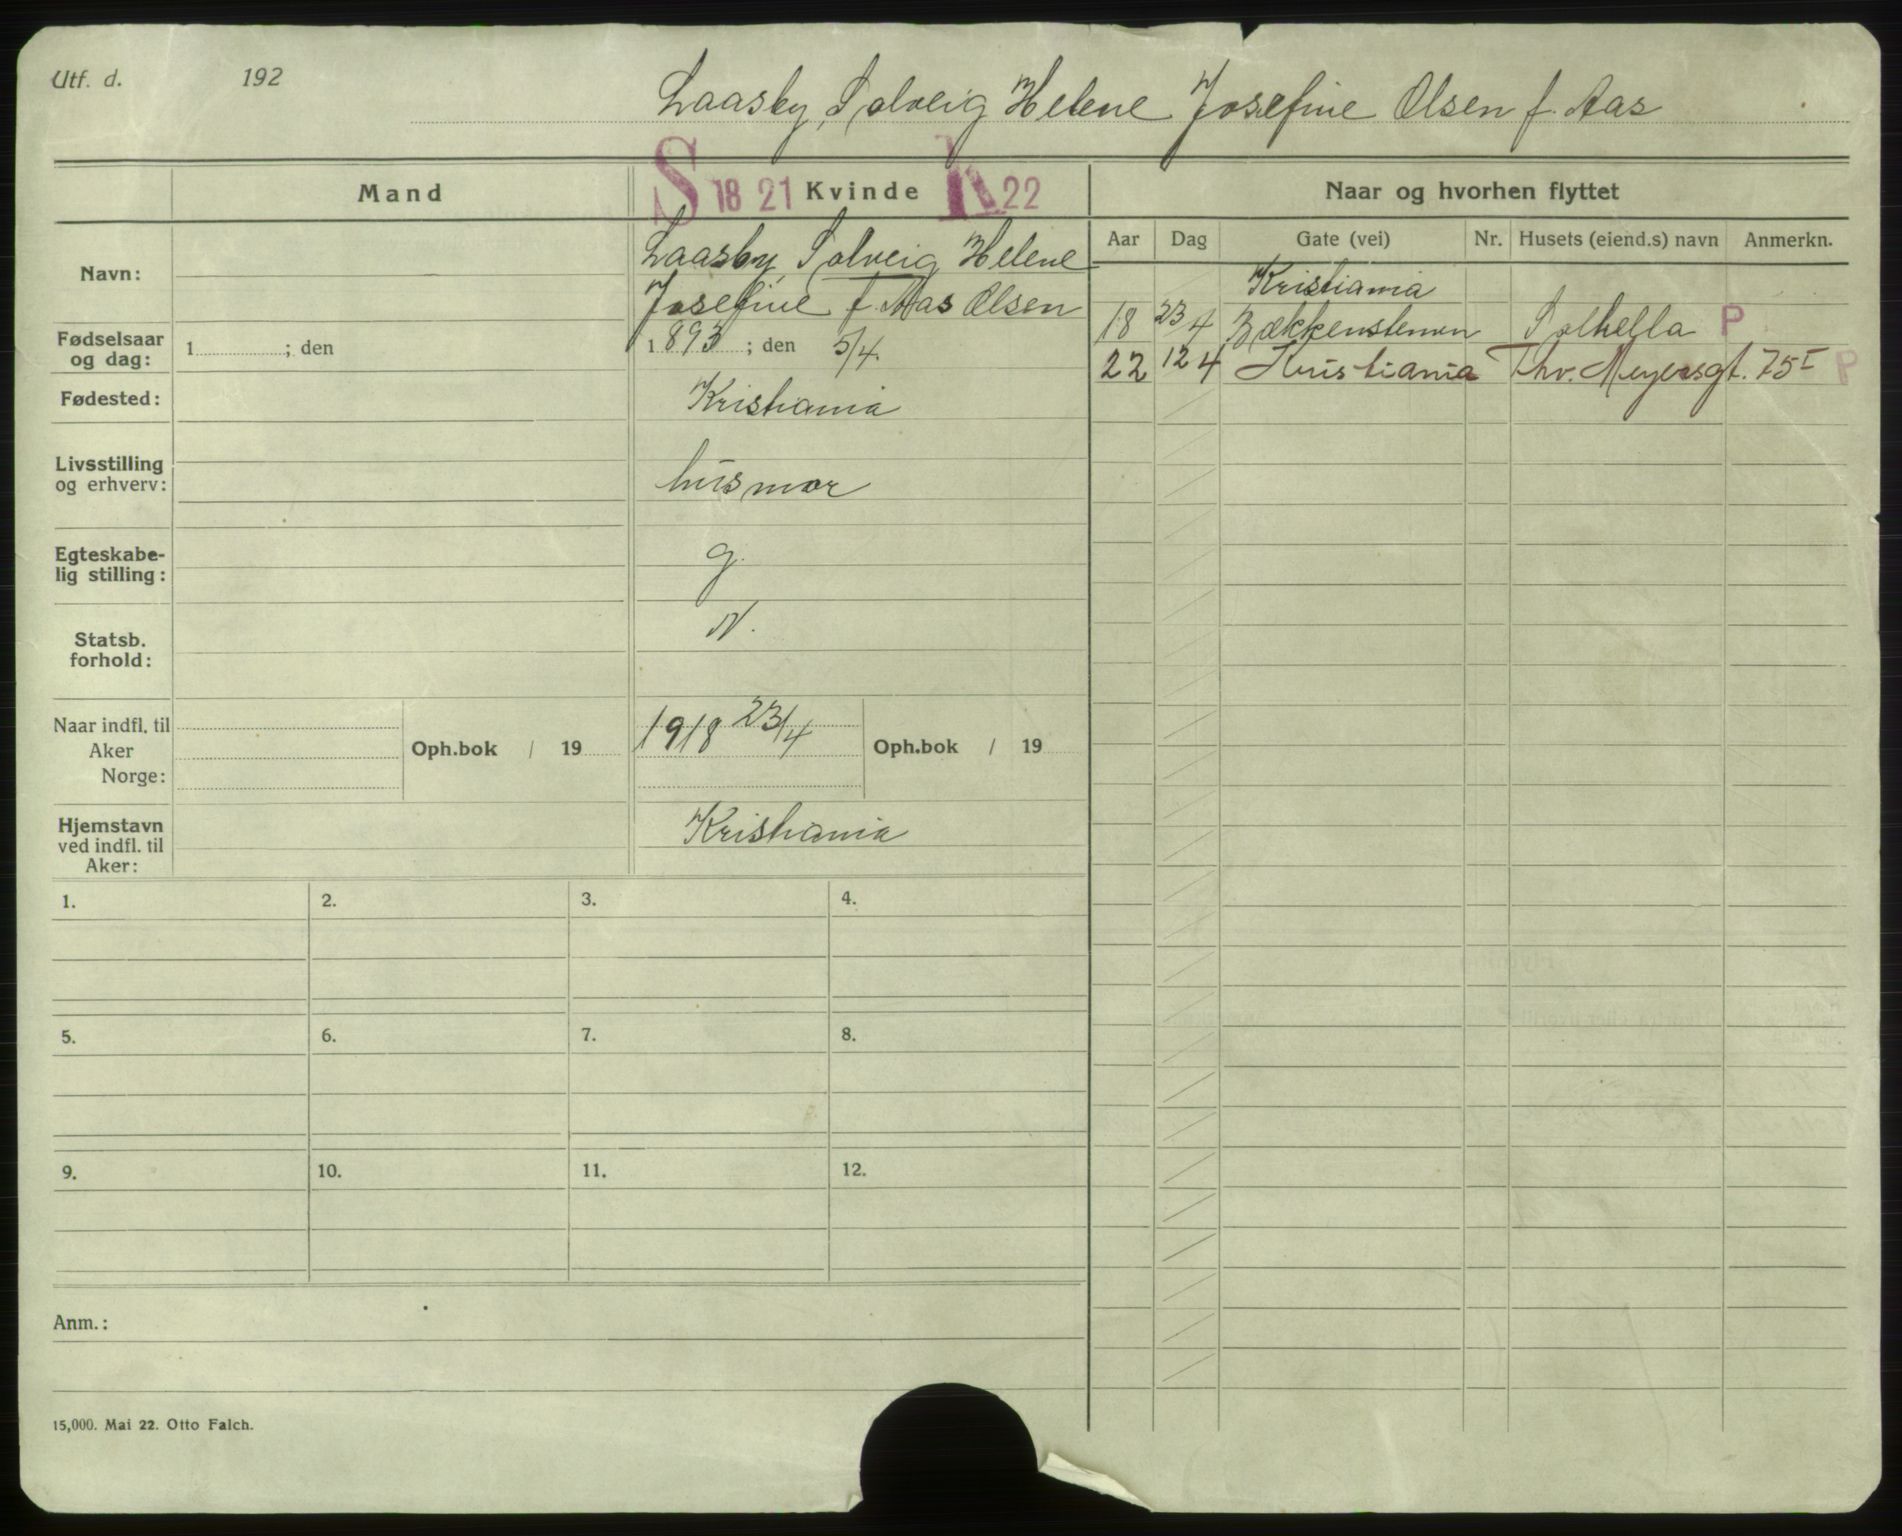 Utf. d. 192
Laasby, Solveig Helene Josefine Olsen f. Aas
Mand
S 18 21 Kvinde K 22
Naar og hvorhen flyttet
Aar Dag Gate (vei) Nr. Husets (eiend.s) navn Anmerkn.
Navn:
Laasby, Solveig Helene
Josefine f. Aas Olsen
Kristiania
18 23 4 Bækkenstenen Solhella P
22 12 4 Kristiania Thv. Meyersgt. 75 I P
Fødselsaar
og dag:
1 ; den
1893 ; den 5/4.
Fødested:
Kristiania
Livsstilling
og erhverv:
husmor
Egteskabe-
lig stilling:
g.
Statsb.
forhold:
N.
Naar indfl. til
Aker
Norge:
Oph.bok / 19
1918 23/4
Oph.bok / 19
Hjemstavn
ved indfl. til
Aker:
Kristiania
1. 2. 3. 4.
5. 6. 7. 8.
9. 10. 11. 12.
Anm.:
15,000. Mai 22. Otto Falch.